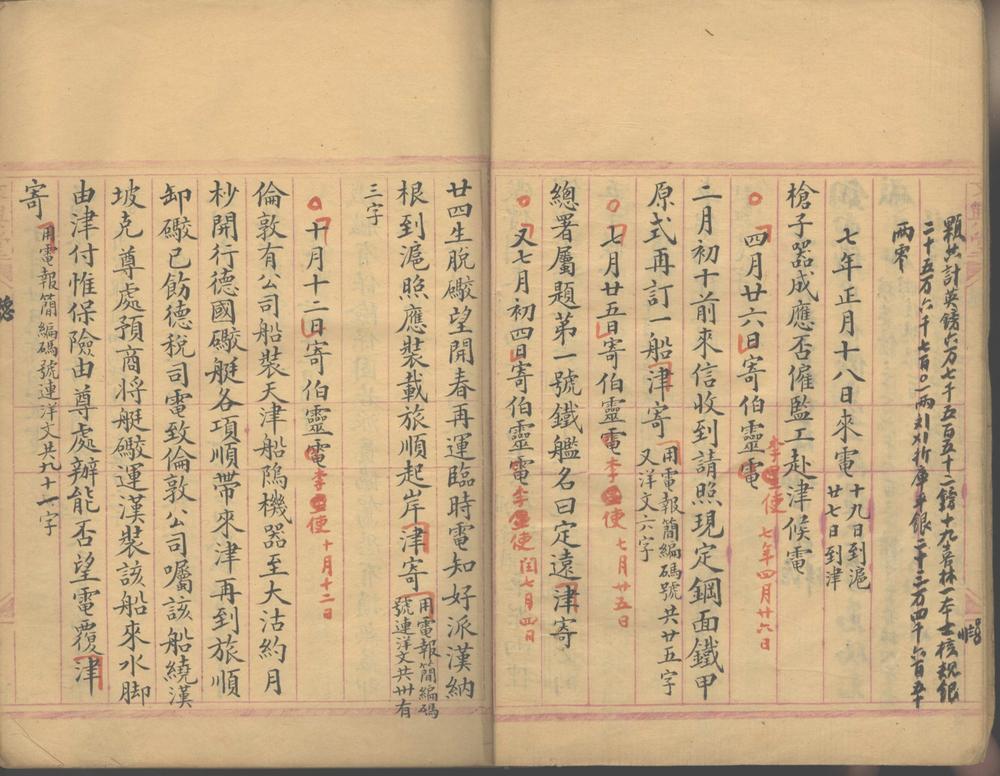 顆共計英鎊六万七千五百五十二鎊十九喜林一本士核規銀
二十五万六千七百〇一兩刈刈折庫平銀二十三万四千六百五十
兩零
七年正月十八日來電 十九日到滬 廿七日到津
槍子器成應否僱監工赴津候電
四月廿六日寄伯靈電 李星使 七年四月廿六日
二月初十前來信收到請照現定鋼面鐵甲
原式再訂一船津寄 用電報簡編碼號共廿五字又洋文六字
七月廿五日寄伯靈電 李星使 七月廿五日
總署屬題第一號鐵艦名曰定遠津寄
又七月初四日寄伯靈電 李星使 閏七月四日
廿四生脱礮望開春再運臨時電知好派漢納
根到滬照應裝載旅順起岸津寄 用電報簡編碼號連洋文共卅有
三字
十月十二日寄伯靈電 李星使 十月十二日
倫敦有公司船裝天津船隖機器至大沽約月
杪開行德國礮艇各項順帶來津再到旅順
卸礮已飭德税司電致倫敦公司囑該船繞漢
坡克尊處預商將艇礮運漢裝該船來水脚
由津付惟保險由尊處辦能否望電覆津
寄 用電報簡編碼號連洋文共九十一字